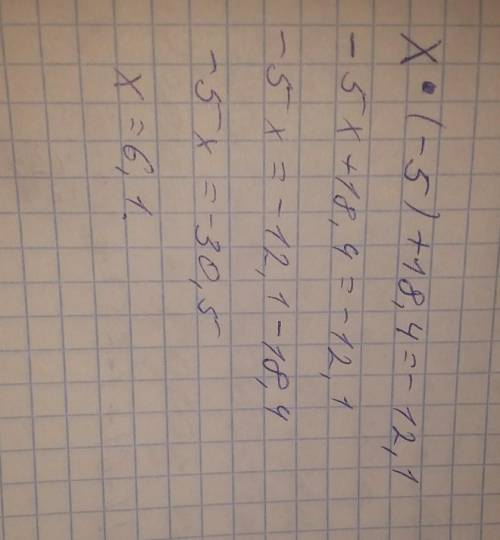 X • (-5) + 18,4 = -12,1
-5x + 18,4 = -12,1
-5x = -12,1 - 18,4
-5x = -30,5
x = 6,1.